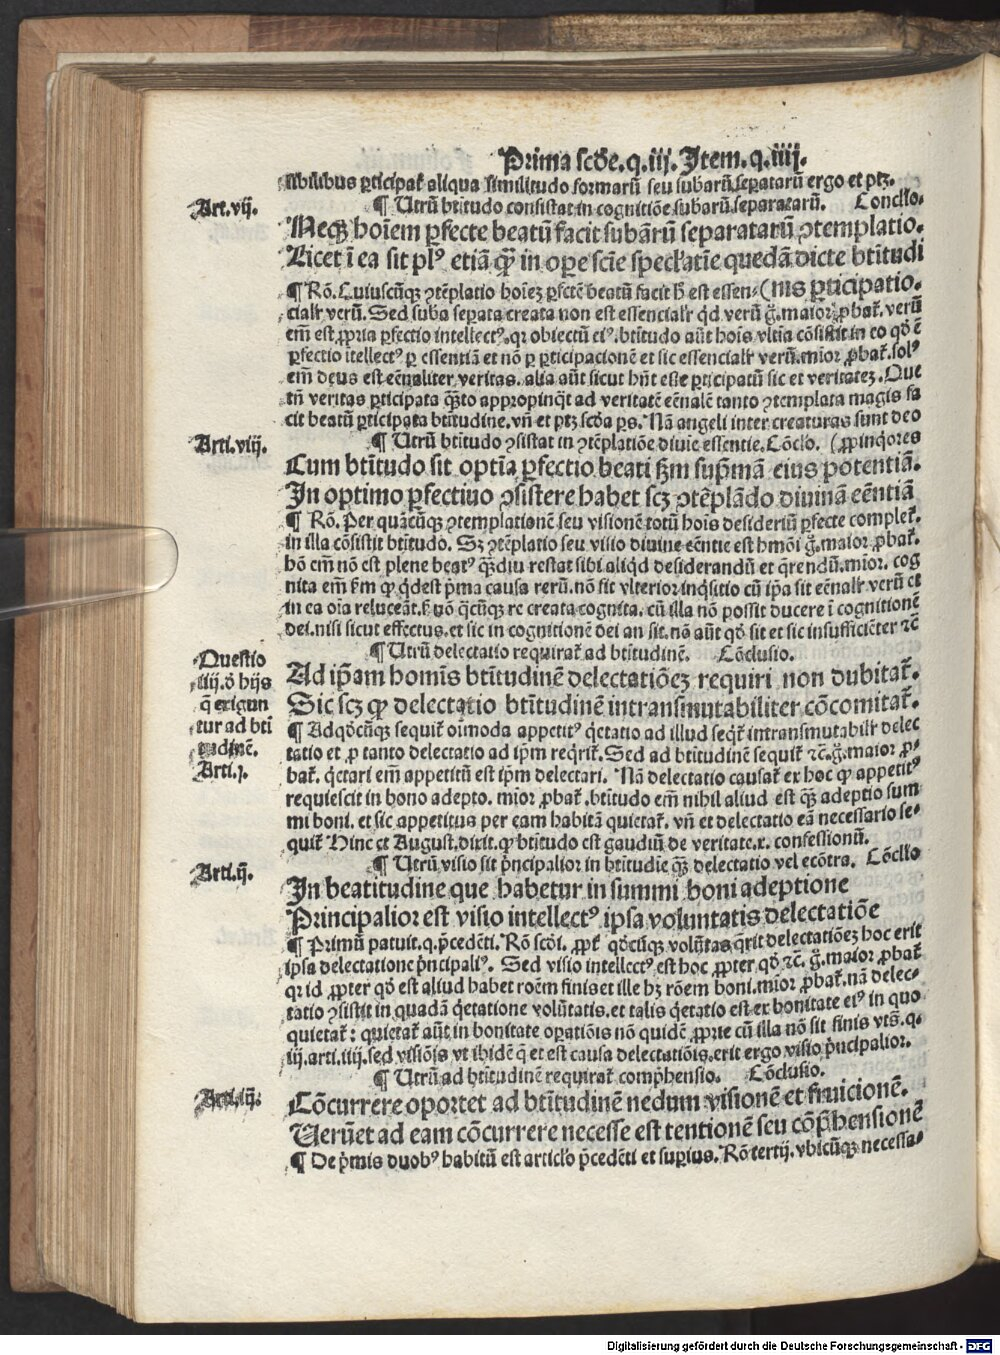 Prima scďe.q.iij. Item.q.iiij.
sibilibus ꝑticipat̉ aliqua similitudo formaꝝ̄ seu subaꝝ̄ seꝑataꝝ̄ ergo et ptꝫ.
Art.vij.
¶ Utrū bt̄itudo consistat in cognitiōe subarū separatarū. Conclło.
Neqꝫ hoīem ꝑfecte beatū facit subārū separatarū ꝯtemplatio.
Licet ī ea sit plꝰ etiā qꝫ̄ in oꝑe scīe specl̉atīe quedā dicte bt̄itudi
¶ Rō. Cuiuscūqꝫ ꝯtēplatio hoīeꝫ ꝑfctē beatū facit ħ est essen- (nis ꝑticipatio.
cial̉r verū. Sed suba seꝑata creata non est essencial̉r qd̄ verū g̊.maior ꝓbat̉. verū
em̄ est ꝓpria ꝑfectio intellectꝰ.qr obiectū eiꝰ.bt̄itudo aūt hois vltīa cōsistit in eo qď ē
ꝑfectio ītellectꝰ ꝑ essentiā et nō ꝑ ꝑticipacionē et sic essencial̉r verū.mior ꝓbat̉.solꝰ
em̄ deus est eēnaliter veritas. alia aūt sicut hn̄t esse ꝑticipatū sic et veritateꝫ. Que
tn̄ veritas ꝑticipata qꝫto appropinq̄t ad veritatē eēnalē tanto ꝯtemplata magis fa
cit beatū ꝑticipata bt̄itudine. vn̄ et ptꝫ scďa ꝑs. Nā angeli inter creaturas sunt deo
Arti.viij.
¶ Utrū bt̄itudo ꝯsistat in ꝯtēplatiōe diuīe essentie. Cōclo. (ꝓpinqores
Cum bt̄itudo sit optīa ꝑfectio beati ẜm sup̄mā eius potentiā.
In optimo ꝑfectiuo ꝯsistere habet scꝫ ꝯtēplādo diuinā eēntiā
¶ Rō. Per quācūqꝫ ꝯtemplationē seu visionē totū hois desideriū ꝑfecte complet̉.
in illa cōsistit bt̄itudo. Sꝫ ꝯtēplatio seu visio diuine eēntie est hmōi g̊.maior ꝓbat̉.
hō em̄ nō est plene beatꝰ qꝫdiu restat sibi aliqd desiderandū et q̄rendū.mior. cog
nita em̄ ẜm ꝙ qdest pͥma causa rerū.nō sit vlterior inqsitio cū ip̄a sit eēnal̉r verū et
in ea oīa reluceāt.ẜ nō qcūqꝫ re creata cognita. cū illa nō possit ducere ī cognitionē
dei.nisi sicut effectus.et sic in cognitionē dei an sit.nā aūt qď sit et sic insufficiēter ⁊c̄
¶ Utrū delectatio requirat̉ ad bt̄itudinē. Cōclusio.
Questio
iiij.ď hijs
q̄ exigun
tur ad btī
tudinē.
Arti.j.
Ad ip̄am homīs bt̄itudinē delectatiōeꝫ requiri non dubitat̉.
Sic scꝫ ꝙ delectatio bt̄itudinē intransmutabiliter cōcomitat̉.
¶ Adqďcūqꝫ sequit̉ oīmoda appetitꝰ q̄tatio ad illud seqt̉ intransmutabil̉r delec
tatio et ꝑ tanto delectatio ad ip̄m reqrit̉. Sed ad bt̄itudinē sequit̉ ⁊c̄.g̊.maior ꝓ-
bat̉. q̄tari em̄ appetitū est ip̄m delectari. Nā delectatio causat̉ ex hoc ꝙ appetitꝰ
requiescit in bono adepto. mior ꝓbat̉ .bt̄itudo em̄ nihil aliud est qꝫ adeptio sum
mi boni. et sic appetitus per eam habitā quietat̉. vn̄ et delectatio eā necessario se-
quit̉ Hinc et August.dixit.ꝙ bt̄itudo est gaudiū de veritate.x. confessionū.
Arti.ij.
¶ Utrū visio sit pͥncipalior in bt̄itudīe qꝫ delectatio vel ecōtra. Cōcllo
In beatitudine que habetur in summi boni adeptione
Principalior est visio intellectꝰ ipsa voluntatis delectatiōe
¶ Primū patuit.q.pͨedēti. Rō scďi. ꝓpt̉ qďcūqꝫ volūtas q̄rit delectatiōeꝫ hoc erit
ipsa delectatione pͥncipaliꝰ. Sed visio intellectꝰ est hoc ꝓpter qď ⁊c̄. g̊.maior ꝓbat̉
qr id ꝓpter qď est aliud habet roēm finis et ille hꝫ rōem boni.mior ꝓbat̉.nā delec-
tatio ꝯsistit in quadā q̄etatione volūtatis.et talis q̄etatio est ex bonitate eiꝰ in quo
quietat̉: quietat̉ aūt in bonitate oꝑatiōis nō quidē ꝓprie cū illa nō sit finis vts̄.q.
iij.arti.iiij.sed visiōis vt ibidē q̄ et est causa delectatiōis.erit ergo visio pͥncipalior.
¶ Utrū ad bt̄itudinē requirat̉ comp̄hensio. Cōclusio.
Arti.iij.
Cōcurrere oportet ad bt̄itudinē nedum visionē et fruicionē.
Verūet ad eam cōcurrere necesse est tentionē seu cōp̄hensionē
¶ De pͥmis duobꝰ habitū est artic̉lo pͨedēti et supius. Rō tertij. vbicūqꝫ necessa-
Digitalisierung gefördert durch die Deutsche Forschungsgemeinschaft - DFG